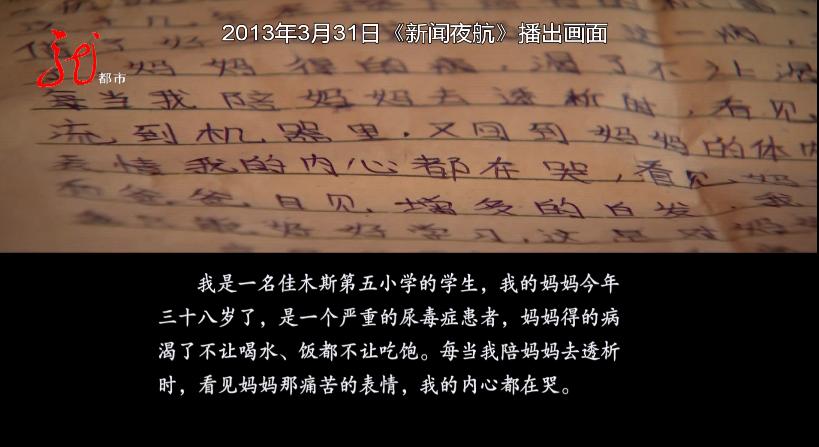 2013年3月31日《新闻夜航》播出画面
都市
妈妈得的病渴了不让渴
每当我陪妈妈去透析时,看见
流到机器里.又回到妈妈的体内
表情我的内心都在哭,看见妈
和爸爸日见增多的白发,我
好好学习,这是
我是一名佳木斯第五小学的学生，我的妈妈今年
三十八岁了，是一个严重的尿毒症患者，妈妈得的病
渴了不让喝水、饭都不让吃饱。每当我陪妈妈去透析
时，看见妈妈那痛苦的表情，我的内心都在哭。